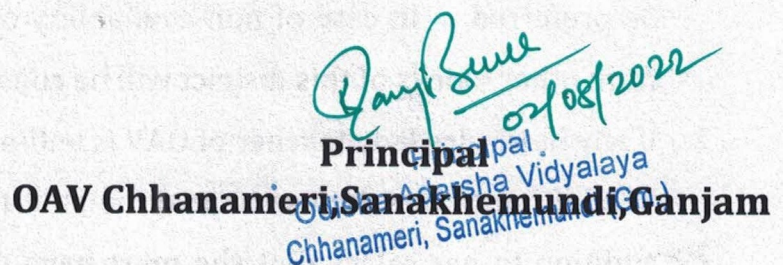 02/08/2022
Principal
Principal
OAV Chhanameri,Sanakhemundi,Ganjam
Odisha Adarsha Vidyalaya
Chhanameri, Sanakhemundi (Gm.)